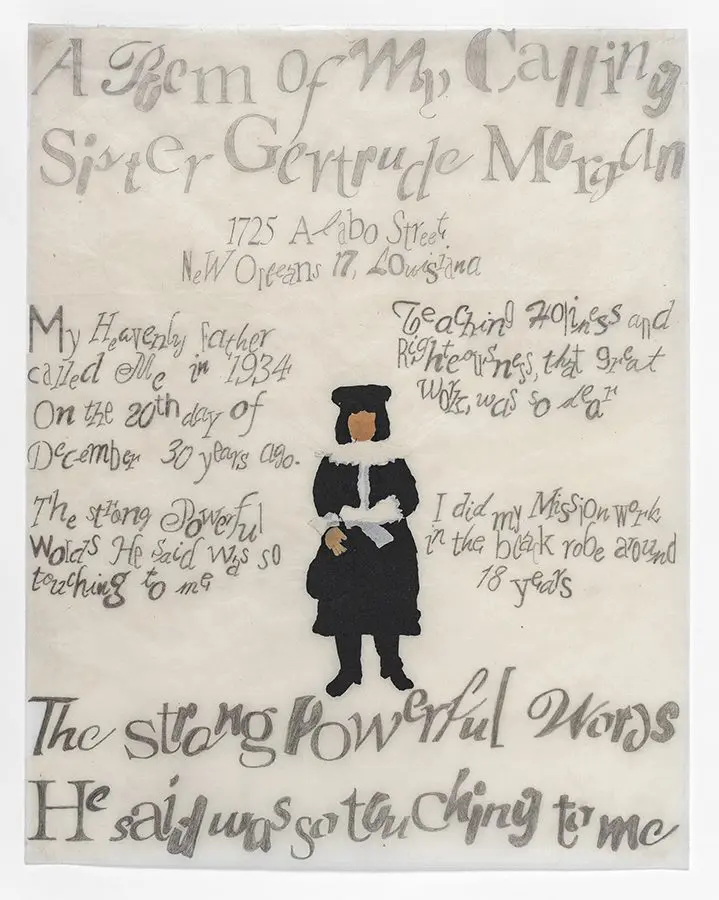 A Poem of My Calling
Sister Gertrude Morgan
1725 Alabo Street
New Orleans 17, Louisiana
My Heavenly father
called Me in 1934
On the 20th day of
December 30 years ago.
The strong Powerful
Words He said was so
touching to me
Teaching Holiness and
Righteousness, that great
Work, was so dear
I did my Mission work
in the black robe around
18 years
The strong Powerful Words
He said was so touching to me